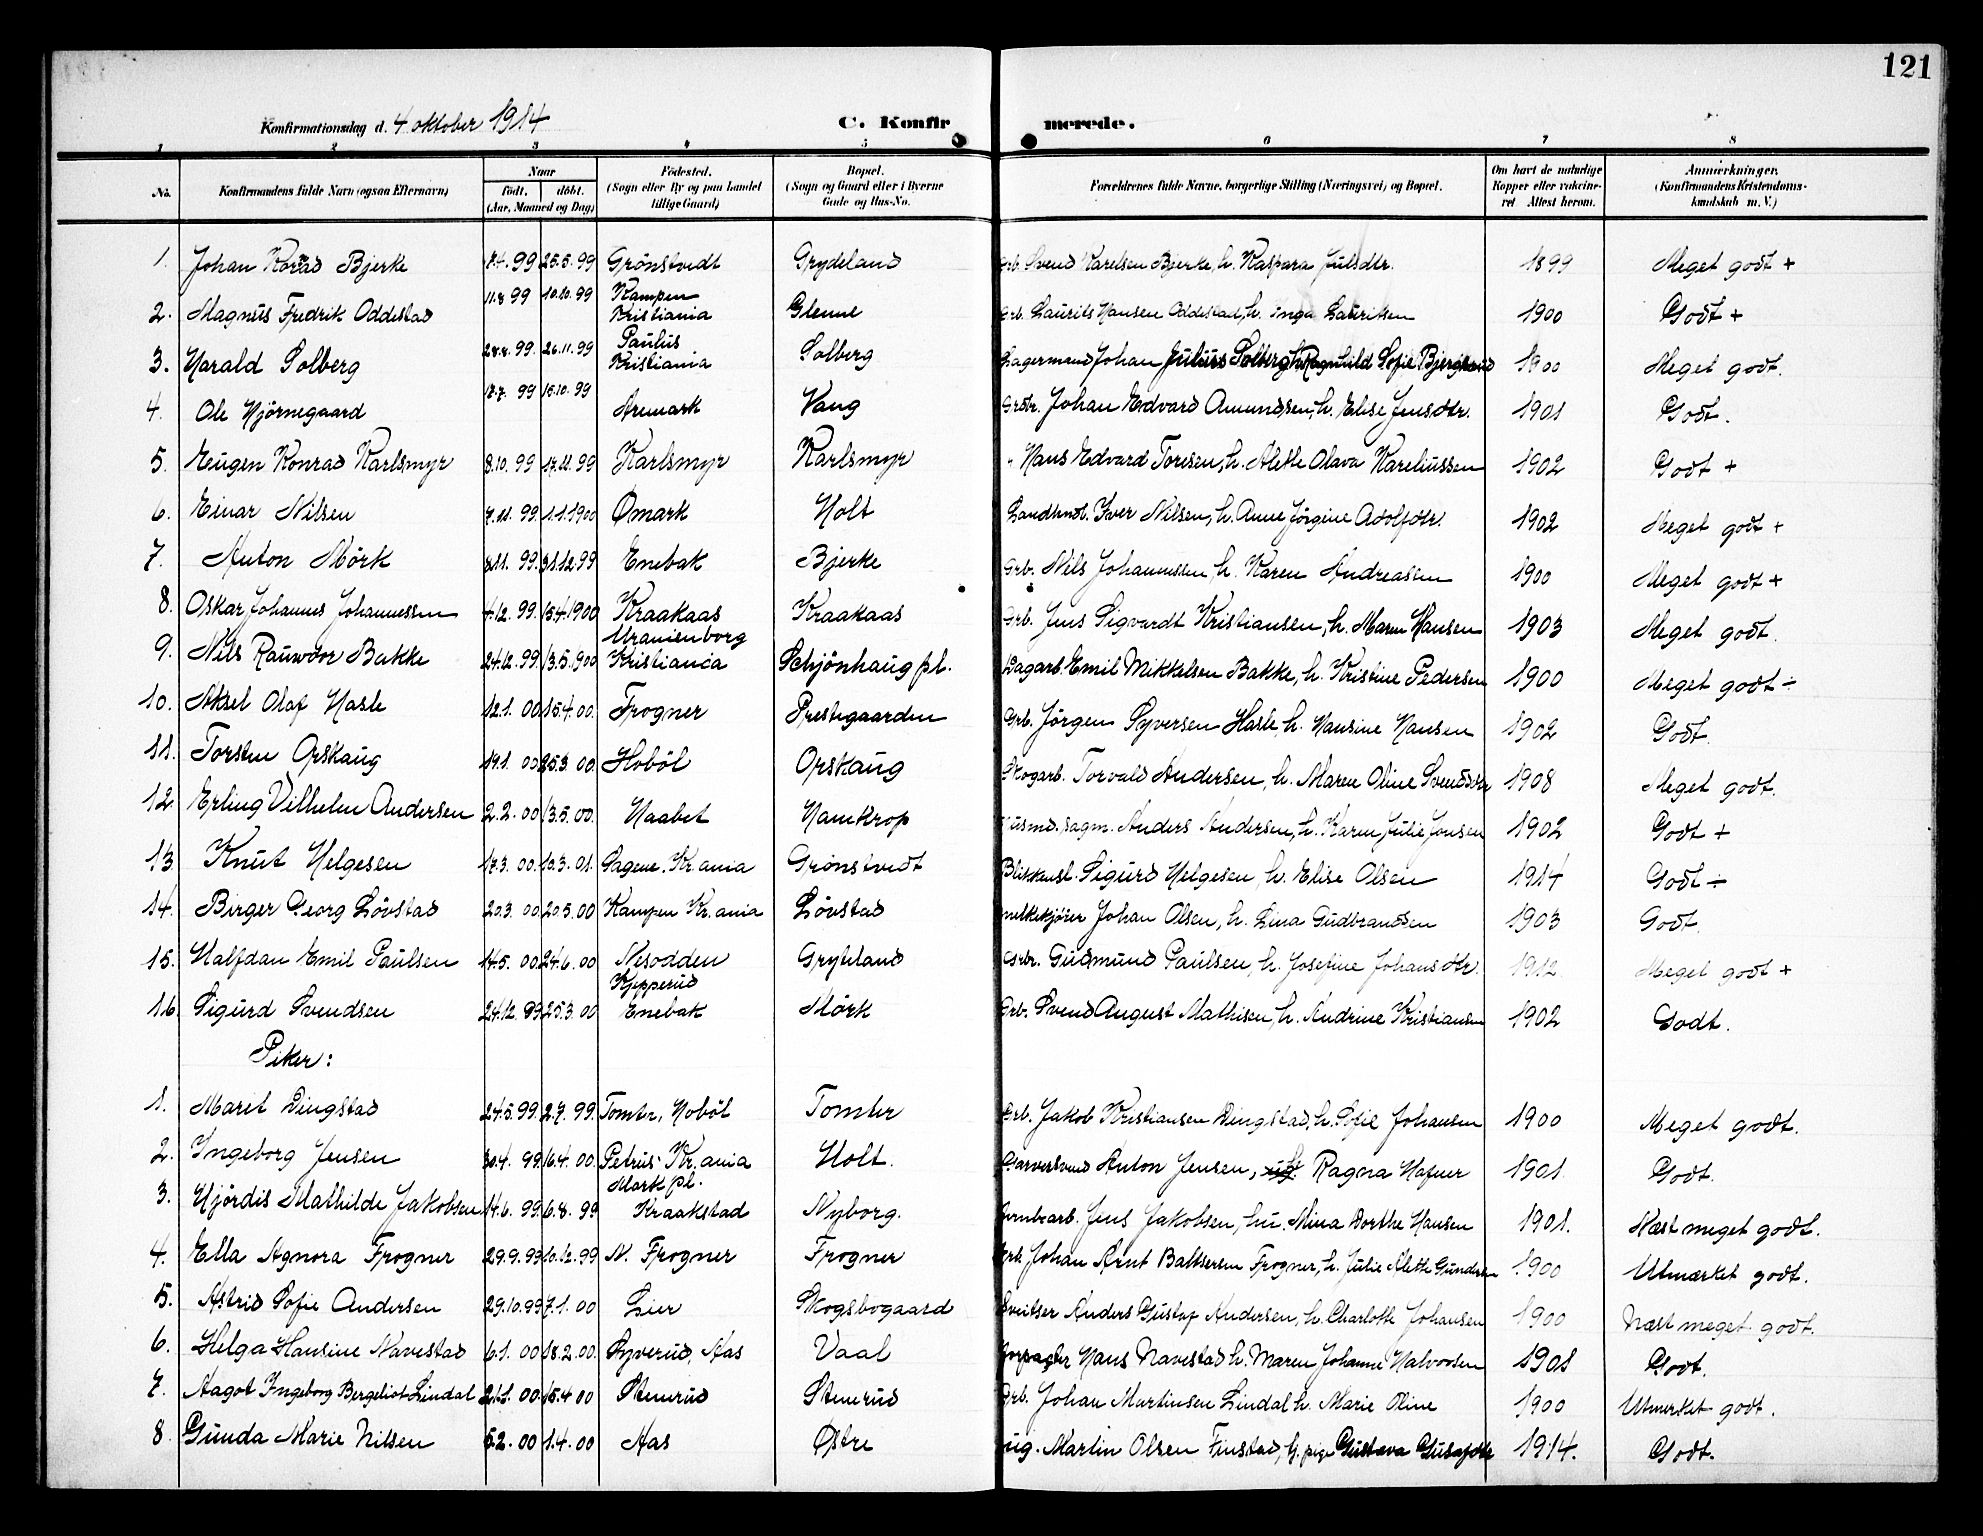 121
Konfirmationsdag d. 4 oktober 1914 C. Konfirmerede.
1 2 3 4 5 6 7 8
No. Konfirmandens fulde Navn (ogsaa Efternavn) Naar født, døbt. (Aar, Maaned og Dag) Fødested. (Sogn eller By og paa Landet tillige Gaard) Bopæl. (Sogn og Gaard eller i Byerne Gade og Hus-No. Forældrenes fulde Navne, borgerlige Stilling (Næringsvei) og Bopæl. Om havt de naturlige Kopper eller vakcineret Attest herom. Anmærkninger. (Konfirmandens Kristendomskundskab m. V.)
1. Johan Konrad Bjerke 7.4. 99 25.5. 99 Grönstvedt Grydeland Grb. Svend Karelsen Bjerke, h. Kaspara Julsdtr. 1899 Meget godt +
2. Magnus Fredrik Oddestad 11.8 99 10.10. 99 Kampen Kristiania Glenne Grb. Laurits Hansen Oddestad, h. Inga Lauritsen 1900 Godt +
3. Harald Solberg 28.8. 99. 26.11. 99 Paulus Kristiania Solberg Lagermand Johan Julius Solberg h. Ragnhild Sofie 1900 Meget godt.
4. Ole Hjörnegaard 17.7. 99 15.10. 99 Aremark Vang Grdbr. Johan Edvard Amundsen, h. Elise Jensdtr. 1901 Godt.
5. Eugen Konrad Karlsmyr 8.10. 99 17.12. 99 Karlsmyr Karlsmyr " Hans Edvard Toresen, h. Alette Olava Kareliussen 1902 Godt +
6. Einar Nilsen 7.11. 99. 1.1.1900 Ømark Holt Landhndl. Iver Nilsen, h. Anne Jörgine Adolfdtr. 1902 Meget godt +
7. Anton Mörk 8.11. 99. 31.12.99 Enebak Bjerke Grb. Nils Johannessen, h. Karen Andreassen 1900 Meget godt +
8. Oskar Johannes Johannessen 4.12. 99. 15.4.1900 Kraakaas Kraakaas Grb. Jens Sigvardt Kristiansen, h. Maren Hansen 1903 Meget godt.
9. Nils Rauwdor Bakke 24.12. 99. 13.5.1900 Uranienborg Kristiania Schjönhaug pl. Dagarb. Emil Mikkelsen Bakke, h. Kristine Pedersen 1900 Meget godt ÷
10. Aksel Olaf Hasle 12.1. 00. 15.4. 00. Frogner Prestegaarden Grb. Jörgen Syversen Hasle, h. Hansine Hansen 1902 Godt.
11. Torsten Opskaug 19.1. 00 25.3. 00. Hoböl Opskaug Skogarb. Torvald Andersen, h. Maren Oline Svendsdtr 1908 Meget godt.
12. Erling Vilhelm Andersen 2.2. 00 13.5. 00. Haabet Hamkrop Husmd. sagm. Anders Andersen, h. Karen Julie Jonsen 1902 Godt +
13. Knut Helgesen 17.3. 00. 10.3. 01. Sagene. Kr.ania Grönstvedt Blikkensl. Sigurd Helgesen, h. Elise Olsen 1914 Godt ÷
14. Birger Georg Lövstad 20.3. 00 20.5. 00 Kampen Kr.ania Lövstad melkekjörer Johan Olsen, h. Lina Gudbrandsen 1903 Godt.
15. Halfdan Emil Paulsen 14.5. 00. 24.6. 00 Nesodden Gryteland Grbr. Gudmund Paulsen, h. Josefine Johansdtr. 1912. Meget godt +
16. Sigurd Svendsen 24.12. 99 25.3. 00 Kjepperud Enebak Mörk Grb. Svend August Mathisen, h. Andrine Kristiansen 1902 Godt.
Piker:
1. Maret Dingstad 24.5. 99. 2.7. 99. Tomter, Hoböl Tomter Grb. Jakob Kristiansen Dingstad, h. Sofie Johansen 1900 Meget godt.
2. Ingeborg Jensen 30.4. 99. 16.4. 00. Petrus Kr.ania Holt. Garversvend Anton Jensen, Ragna Hafner 1901 Godt.
3. Hjördis Mathilde Jakobsen 14.6. 99. 6.8. 99 Mork pl. Kraakstad Nyborg. Jernbarb. Jens Jakobsen, hu. Mina Dorthe Hansen 1901. Næst meget godt.
4. Ella Agnora Frogner 29.9. 99 10.12. 99 N. Frogner Frogner Grb. Johan Arnt Baltsersen Frogner, h. Julie Alette Gundersen 1900 Utmærket godt.
5. Astrid Sofie Andersen 29.10.99 7.1. 00 Lier Skogsbogaard Sveitser Anders Gustaf Andersen, h. Charlotte Johansen 1900 Næst meget godt.
6. Helga Hansine Navestad 6.1. 00 18.2. 00. Syverud, Aas Vaal Forpagter Hans Navestad h. Maren Johanne Halvorsen 1901 Godt.
7. Aagot Ingeborg Bergeliot Lindal 21.1. 00 15.4 00 Stenerud Stenerud Grb. Johan Martinsen Lindal h. Marie Oline 1900 Utmerket godt.
8. Gunda Marie Nilsen 5.2. 00 1.4. 00 Aas Østre ug. Martin Olsen Finstad, h. pige Gustava 1914. Godt.